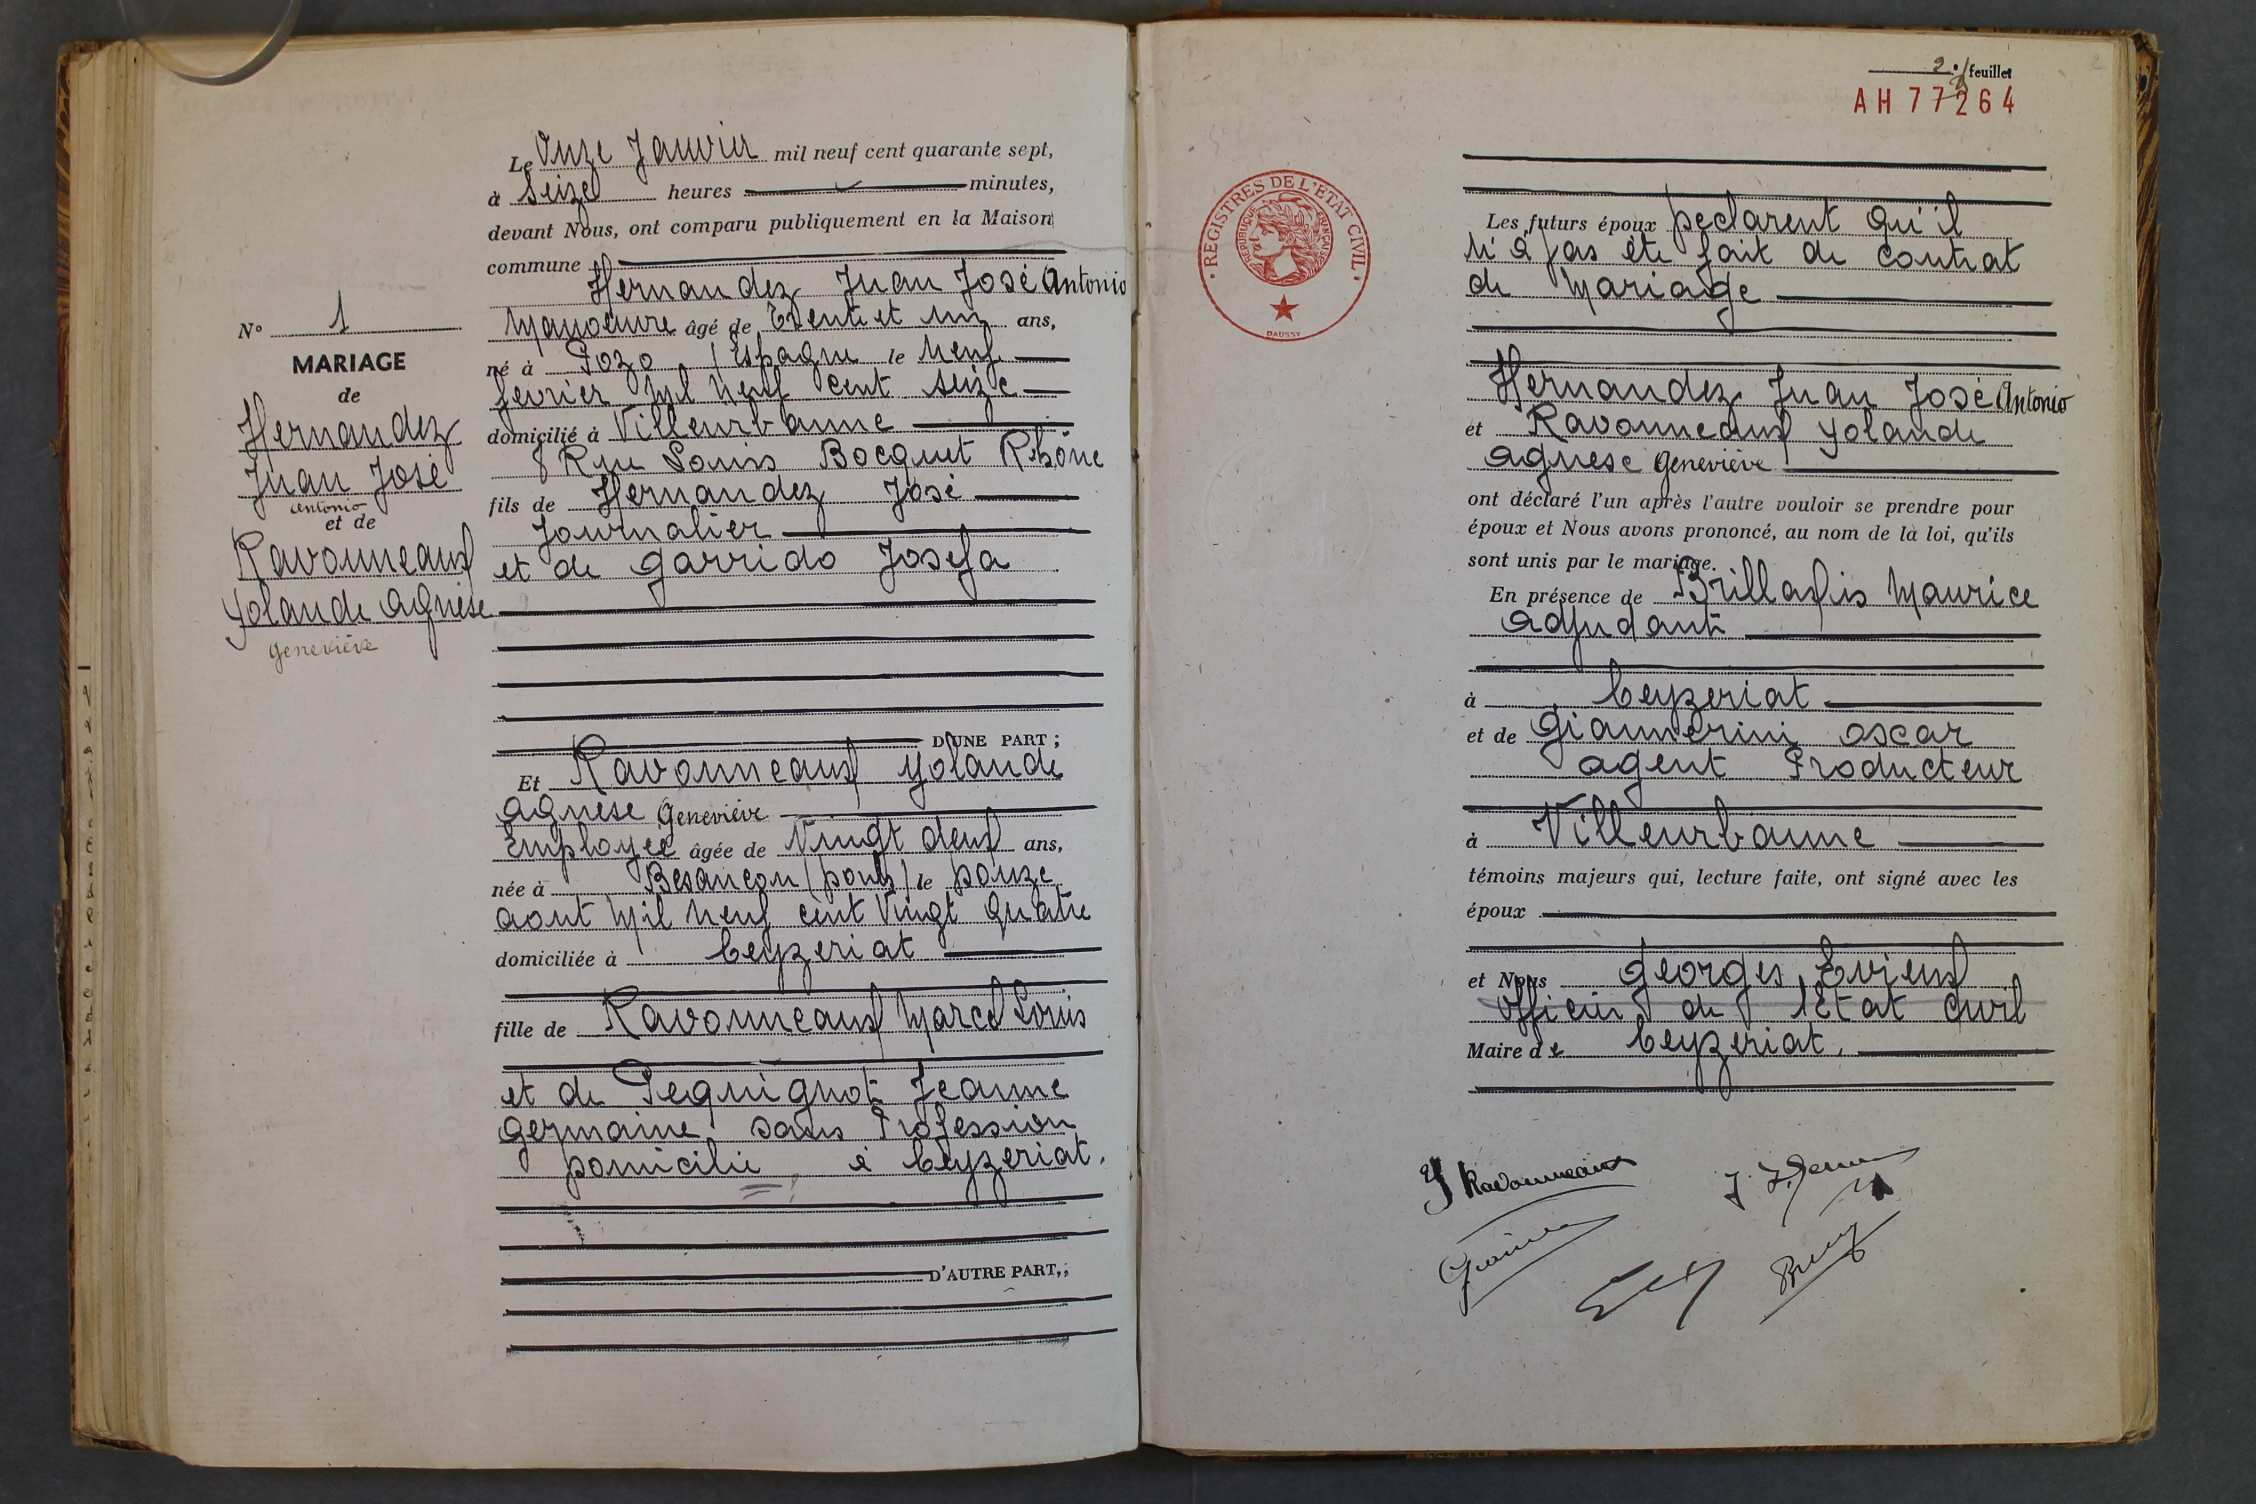 Le Onze Janvier mil neuf cent quarante sept,
à Seize heures minutes,
devant Nous, ont comparu publiquement en la Maison
commune
Hernandez Juan José Antonio
Manoeuvre âgé de Trente et un ans,
né à Pozo / Espagne le neuf
fevrier Mil Neuf cent seize
domicilié à Villeurbanne
8 Rue Louis Bocquet Rhône
fils de Hernandez José
Journalier
et de Garrido Josefa
N° 1
MARIAGE
de
Hernandez
Juan José
Antonio
et de
Ravonneaux
Yolande Agnèse
Geneviève
D'UNE PART ;
Et Ravonneaux Yolande
Agnese Geneviève
Employée âgée de Vingt deux ans,
née à Besançon (Doubs) le Douze
aout Mil Neuf cent Vingt Quatre
domiciliée à Ceyzeriat
fille de Ravonneaux Marcel Louis
et de Pequignot Jeanne
Germaine sans Profession
Domicilié à Ceyzeriat.
D'AUTRE PART,;
2e feuillet
AH 77264
REGISTRES DE L'ETAT CIVIL
REPUBLIQUE FRANÇAISE
DAUSSY
Les futurs époux Declarent Qu'il
N'a pas été fait de Contrat
de Mariage
Hernandez Juan José Antonio
et Ravonneaux Yolande
Agnese Geneviève
ont déclaré l'un après l'autre vouloir se prendre pour
époux et Nous avons prononcé, au nom de là loi, qu'ils
sont unis par le mariage.
En présence de Maurice
Adjudant
à Ceyzeriat
et de Giannerini Oscar
Agent Producteur
à Villeurbanne
témoins majeurs qui, lecture faite, ont signé avec les
époux
et Nous Georges
Officier de l'Etat Civil
Maire de Ceyzeriat.
Y Ravonneaux